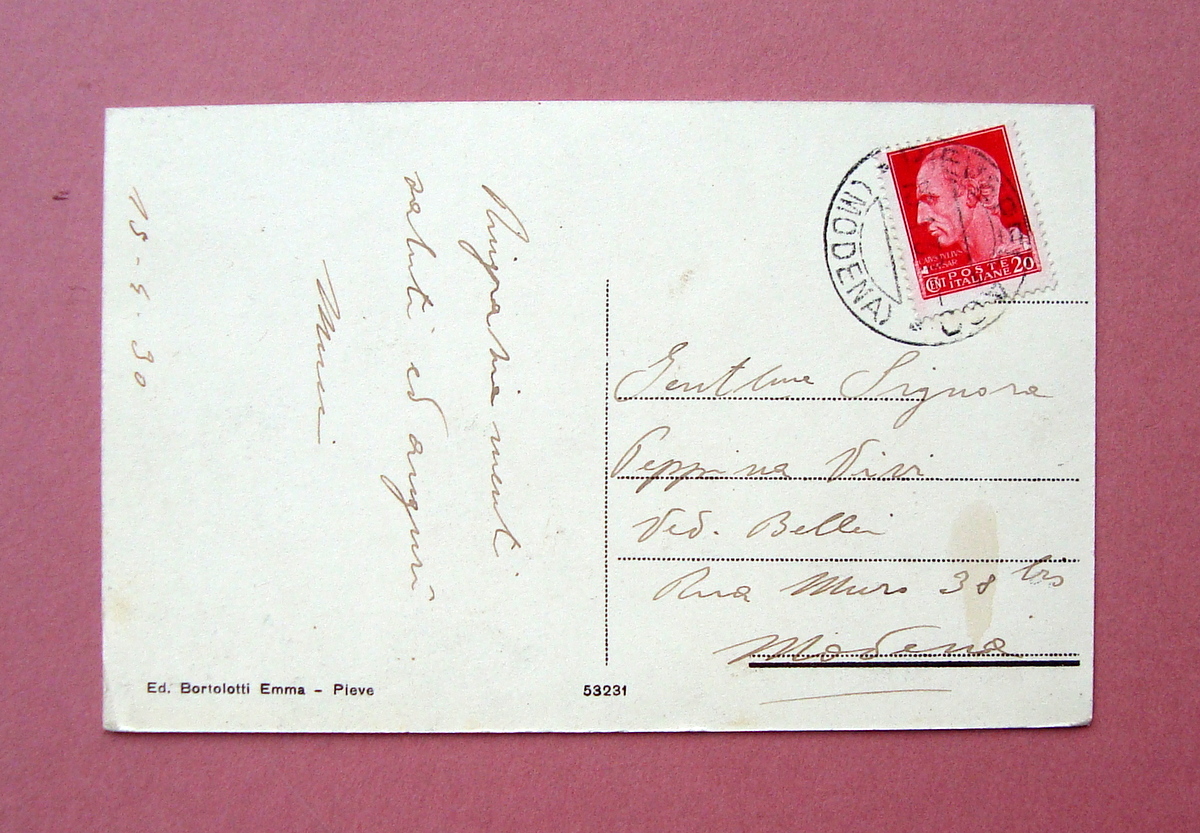 15 - 5 - 30
Ringraziamenti
saluti ed auguri
(MODENA)
IVLIVS
CAESAR
CENT POSTE ITALIANE 20
Gentilma Signora
Peppina Vivi
Ved. Bellei
Rua Muro 38 bis
Modena
Ed. Bortolotti Emma - Pieve
53231